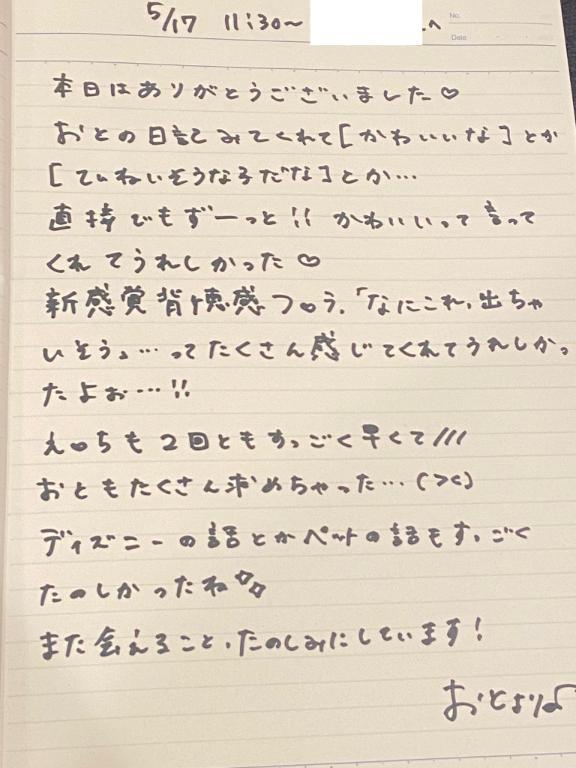 5/17 11:30〜 へ
No.
Date
本日はありがとうございました♡
おとの日記みてくれて[かわいいな]とか
[ていねいそうな子だな]とか…
直接でもずーっと!! かわいいって言って
くれてうれしかった♡
新感覚背徳感フ♡ラ、「なにこれ、出ちゃ
いそう」…ってたくさん感じてくれてうれしかっ
たよぉ…!!
え♡ちも2回ともすっごく早くて///
おともたくさん求めちゃった…(><)
ディズニーの話とかペットの話もすっごく
たのしかったね
また会えること、たのしみにしています!
おとより♡